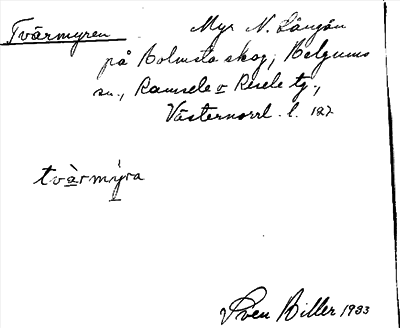 Tvärmyren Myr N. Långån
på Bolmsta skog, Helgums
sn., Ramsele o Resele tg.,
Västernorrl. l. 127
tvärmýra
Sven Biller 1933